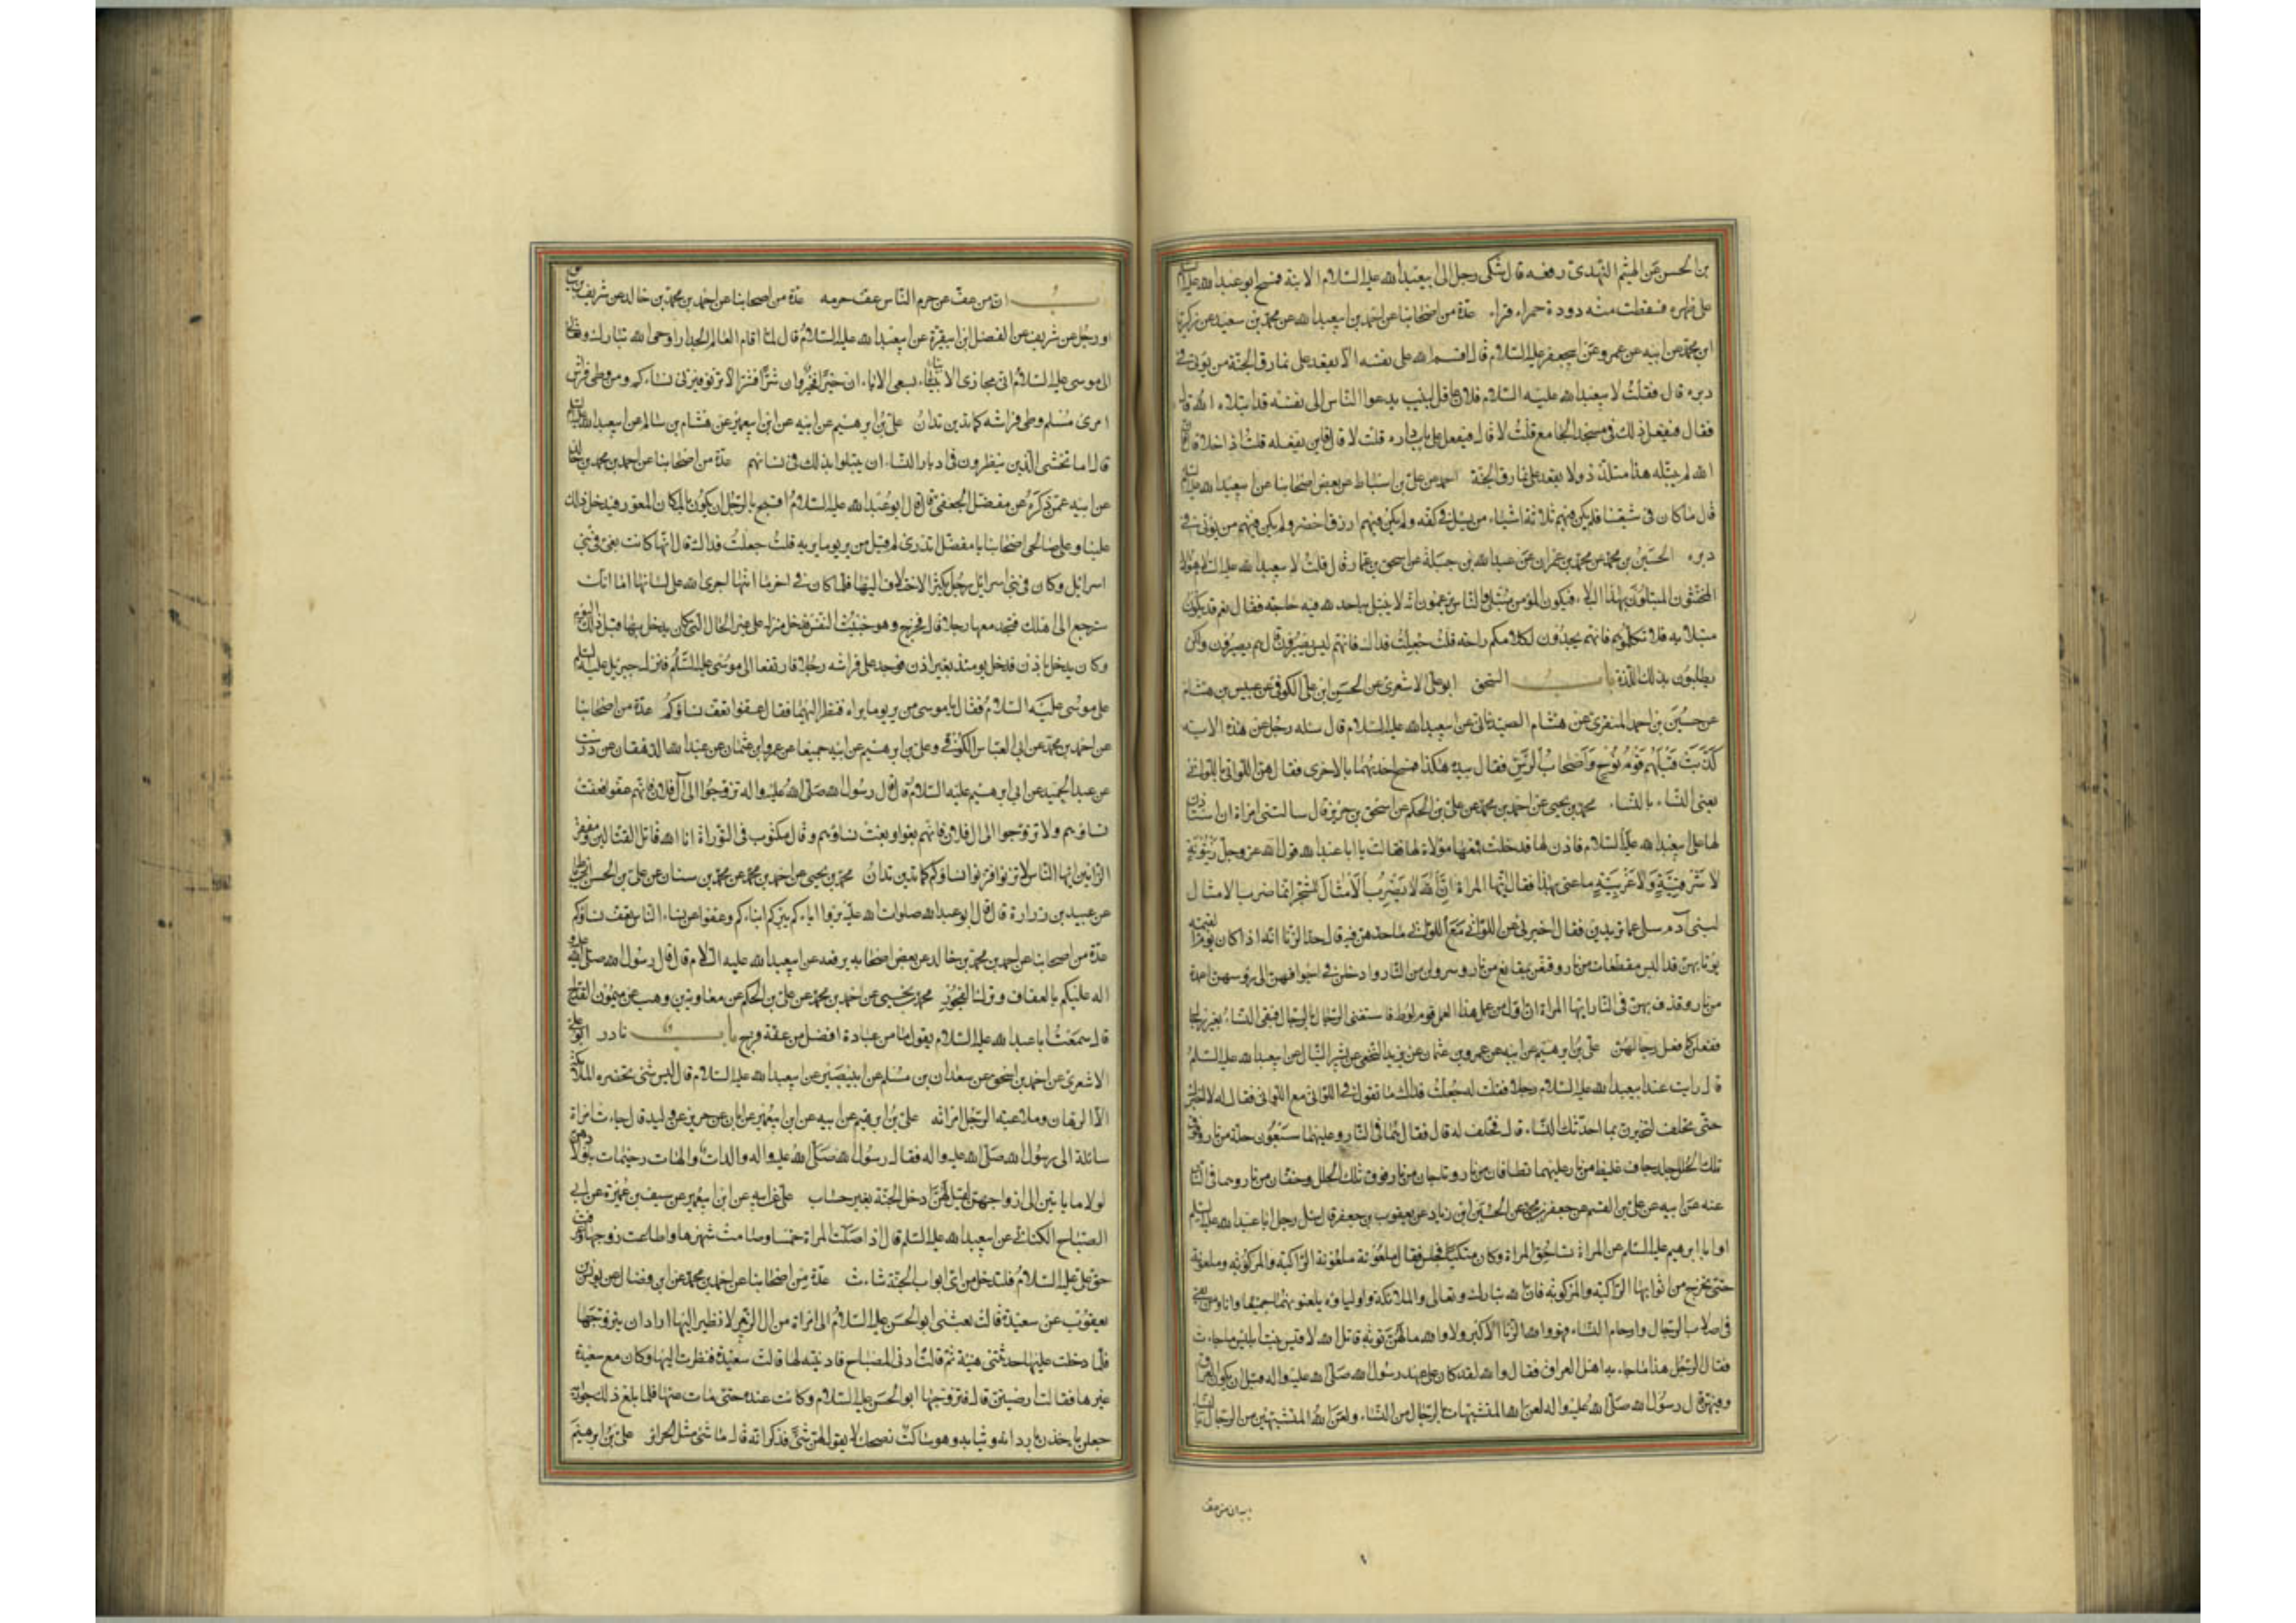 بن الحسن عن الهيثم النهدى رفعه قال شكى رجل الى ابيعبدالله عليه السلام الابنة فمسح ابو عبدالله عليه السلام
على ظهره فسقطت منه دودة حمراء فبراء عدة من اصحابنا عن احمد بن ابيعبدالله عن محمد بن سعيد عن زكريا
ابن محمد عن ابيه عن عمرو عن ابيجعفر عليه السلام قال اقسم الله على نفسه الا يقعد على نمارق الجنة من يؤتى فى
دبره قال فقلت لابيعبدالله عليه السلام فلان عاقل لبيب يدعوا الناس الى نفسه قد ابتلاه الله قال
فقال فيفعل ذلك فى مسجد الجامع قلت لا قال فيفعل على باب داره قلت لا قال فاين يفعله قلت اذا خلا قال فان
الله لم يبتله هذا متلذذ ولا يقعد على نمارق الجنة احمد عن على بن اسباط عن بعض اصحابنا عن ابيعبدالله عليه السلام
قال ما كان فى شيعتنا فلم يكن فيهم ثلاثة اشياء من يسئل فى كفه ولم يكن فيهم ازرق اخضر ولم يكن فيهم من يؤتى فى
دبره الحسين بن محمد عن محمد بن عمران عن عبدالله بن جبلة عن اسحق بن عمار قال قلت لابيعبدالله عليه السلام هؤلاء
المخنثون المبتلون بهذا البلاء فيكون المؤمن مبتلى والناس يزعمون انه لا يبتلى به احد لله فيه حاجة فقال نعم قد يكون
مبتلا به فلا تكلموهم فانهم يجدون لكلامكم راحة قلت جعلت فداك فانهم ليس يصبرون قال هم يصبرون ولكن
يطلبون بذلك اللذة باب السحق ابو على الاشعرى عن الحسن ابن على الكوفى عن عبيس بن هشام
عن حسين بن احمد المنقرى عن هشام الصيدنانى عن ابيعبدالله عليه السلام قال سئله رجل عن هذه الاية
كذبت قبلهم قوم نوح واصحاب الرس فقال بيده هكذا فمسح احديهما بالاخرى فقال هن اللواتى باللواتى
يعنى النساء بالنساء محمد بن يحيى عن احمد بن محمد عن على بن الحكم عن اسحق بن جرير قال سالتنى امراة ان استاذن
لها على ابيعبدالله عليه السلام فاذن لها فدخلت ومعها مولاة لها فقالت يا ابا عبدالله قول الله عز وجل زيتونة
لا شرقية ولا غربية ما عنى بهذا فقال ايتها المراة ان الله لا يضرب الامثال للشجر انما ضرب الامثال
لبنى آدم سلى عما تريدين فقال اخبرنى عن اللواتى مع اللواتى ما حدهن فيه قال حد الزنا انه اذا كان يوم القيمة
يؤتا بهن قد البسن مقطعات من نار وقنعن بمقانع من نار وسرولن من النار وادخل فى اجوافهن الى رؤسهن اعمدة
من نار وقذف بهن فى النار ايتها المراة ان اول من عمل هذا العمل قوم لوط فاستغنى الرجال بالرجال فبقى النساء بغير رجال
ففعلن كما فعل رجالهن على بن ابرهيم عن ابيه عن عمرو بن عثمان عن يزيد النخعى عن بشير النبال عن ابيعبدالله عليه السلم
قال رايت عند ابيعبدالله عليه السلام رجلا فقلت له جعلت فداك ما تقول فى اللواتى مع اللواتى فقال له لا اخبرك
حتى تحلف لتخبرن بما احدثك النساء قال فحلف له قال فقال هما فى النار وعليهما سبعون حلة من نار وفوق
تلك الحلل جلد جاف غليظ من نار عليهما نطاقان من نار وتاجان من نار فوق تلك الحلل وخفان من نار وهما فى النار
عنه عن ابيه عن على بن القسم عن جعفر بن محمد عن الحسين ابن زياد عن يعقوب بن جعفر قال سئل رجل ابا عبدالله عليه السلم
او ابا ابرهيم عليه السلم عن المراة تساحق المراة وكان متكيا فجلس فقال ملعونة ملعونة الراكبة والمركوبة وملعونة
حتى تخرج من اثوابها الراكبة والمركوبة فان الله تبارك وتعالى والملائكة واولياؤه يلعنونهما جميعا وانا ومن بقى
فى اصلاب الرجال وارحام النساء فهو والله الزنا الاكبر ولا والله ما لهن توبة قاتل الله لاقيس بنت ابليس ماذا جاءت
فقال الرجل هذا ما جاء به اهل العراق فقال والله لقد كان على عهد رسول الله صلى الله عليه واله قبل ان يكون العراق
وفيهن قال رسول الله صلى الله عليه واله لعن الله المتشبهات بالرجال من النساء ولعن الله المتشبهين من الرجال بالنساء
باب ان من عف
باب ان من عف عن حرم الناس عف حرمه عدة من اصحابنا عن احمد بن محمد بن خالد عن شريف بن سابق
او رجل عن شريف عن الفضل ابن ابيقرة عن ابيعبدالله عليه السلام قال لما اقام العالم الجدار اوحى الله تبارك وتعالى
الى موسى عليه السلام انى مجازى الابناء بسعى الاباء ان خيرا فخير وان شرا فشر لا تزنوا فتزنى نساءكم ومن وطى فراش
امرئ مسلم وطى فراشه كما تدين تدان على بن ابرهيم عن ابيه عن ابن ابيعمير عن هشام بن سالم عن ابيعبدالله عليه السلم
قال اما تخشى الذين ينظرون فى ادبار النساء ان يبتلوا بذلك فى نسائهم عدة من اصحابنا عن احمد بن محمد بن خالد
عن ابيه عمن ذكره عن مفضل الجعفى قال قال ابو عبدالله عليه السلام ما اقبح بالرجل ان يكون بالمكان المعور فيدخل ذلك
علينا وعلى صالحى اصحابنا يا مفضل اتدرى لم قيل من يزن يوما يزن به قلت جعلت فداك قال انها كانت بغى فى بنى
اسرائيل وكان فى بنى اسرائيل رجل يكثر الاختلاف اليها فلما كان فى اخر ما اتاها اجرى الله على لسانها اما انك
سترجع الى اهلك فتجد معها رجلا قال فخرج وهو خبيث النفس فدخل منزله على غير الحال التى كان يدخل بها قبل ذلك اليوم
وكان يدخل باذن فدخل يومئذ بغير اذن فوجد على فراشه رجلا فارتفعا الى موسى عليه السلم فنزل جبريل عليه السلم
على موسى عليه السلام فقال يا موسى من يزن يوما يزن به فنظر اليهما فقال عفوا تعف نساؤكم عدة من اصحابنا
عن احمد بن محمد عن ابى العباس الكوفى وعلى بن ابرهيم عن ابيه جميعا عن عمرو ابن عثمان عن عبدالله الدهقان عن درست
عن عبد الحميد عن ابى ابرهيم عليه السلام قال قال رسول الله صلى الله عليه واله تزوجوا الى آل فلان فانهم عفوا فعفت
نساؤهم ولا تزوجوا الى ال فلان فانهم بغوا وبغت نساؤهم وقال مكتوب فى التورىة انا الله قاتل القتالين ومفقر
الزانين ايها الناس لا تزنوا فتزنوا نساؤكم كما تدين تدان محمد بن يحيى عن احمد بن محمد عن محمد بن سنان عن على بن الحسن
عن عبيد بن زرارة قال قال ابو عبدالله صلوات الله عليه بروا اباءكم يبركم ابناءكم وعفوا عن نساء الناس تعف نساؤكم
عدة من اصحابنا عن احمد بن محمد بن خالد عن بعض اصحابه يرفعه عن ابيعبدالله عليه السلام قال قال رسول الله صلى الله عليه و
اله عليكم بالعفاف وترك الفجور محمد بن يحيى عن احمد بن محمد عن على بن الحكم عن معاوية بن وهب عن ميمون القداح
قال سمعت ابا عبدالله عليه السلام يقول ما من عبادة افضل من عفة فرج باب نادر ابو على
الاشعرى عن احمد بن اسحق عن سعدان بن مسلم عن ابيبصير عن ابيعبدالله عليه السلام قال ليس شئ تحضره الملائكة
الا الرهان وملاعبة الرجل امراته على بن ابرهيم عن ابيه عن ابن ابيعمير عن ابان عن حريز عن وليد قال جاءت امراة
سائلة الى رسول الله صلى الله عليه واله فقال رسول الله صلى الله عليه واله والدات والهات رحيمات باولادهن
لولا ما ياتين الى ازواجهن لقيل لهن ادخلن الجنة بغير حساب على عن ابيه عن ابن ابيعمير عن سيف بن عميرة عن ابى
الصباح الكنانى عن ابيعبدالله عليه السلم قال اذا صلت المراة خمسا وصامت شهرها واطاعت زوجها وعرفت
حق على عليه السلام فلتدخل من اى ابواب الجنة شاءت عدة من اصحابنا عن احمد بن محمد عن ابن فضال عن يونس بن
يعقوب عن سعيدة قالت بعثنى ابو الحسن عليه السلام الى امراة من ال الزبير لا نظير اليها اراد ان يتزوجها
فلما دخلت عليها حدثتنى هنية ثم قالت ادنى المصباح فادنيته لها قالت سعيدة فنظرت اليها وكان مع سعيدة
غيرها فقالت ارضيتن قال فتزوجها ابو الحسن عليه السلام وكانت عنده حتى مات عنها فلما بلغ ذلك جواريه
جعلن ياخذن بردائه وثيابه وهو ساكت نضحك لا يقول لهن شئ فذكر انه قال ما شئ مثل الحرائر على بن ابرهيم